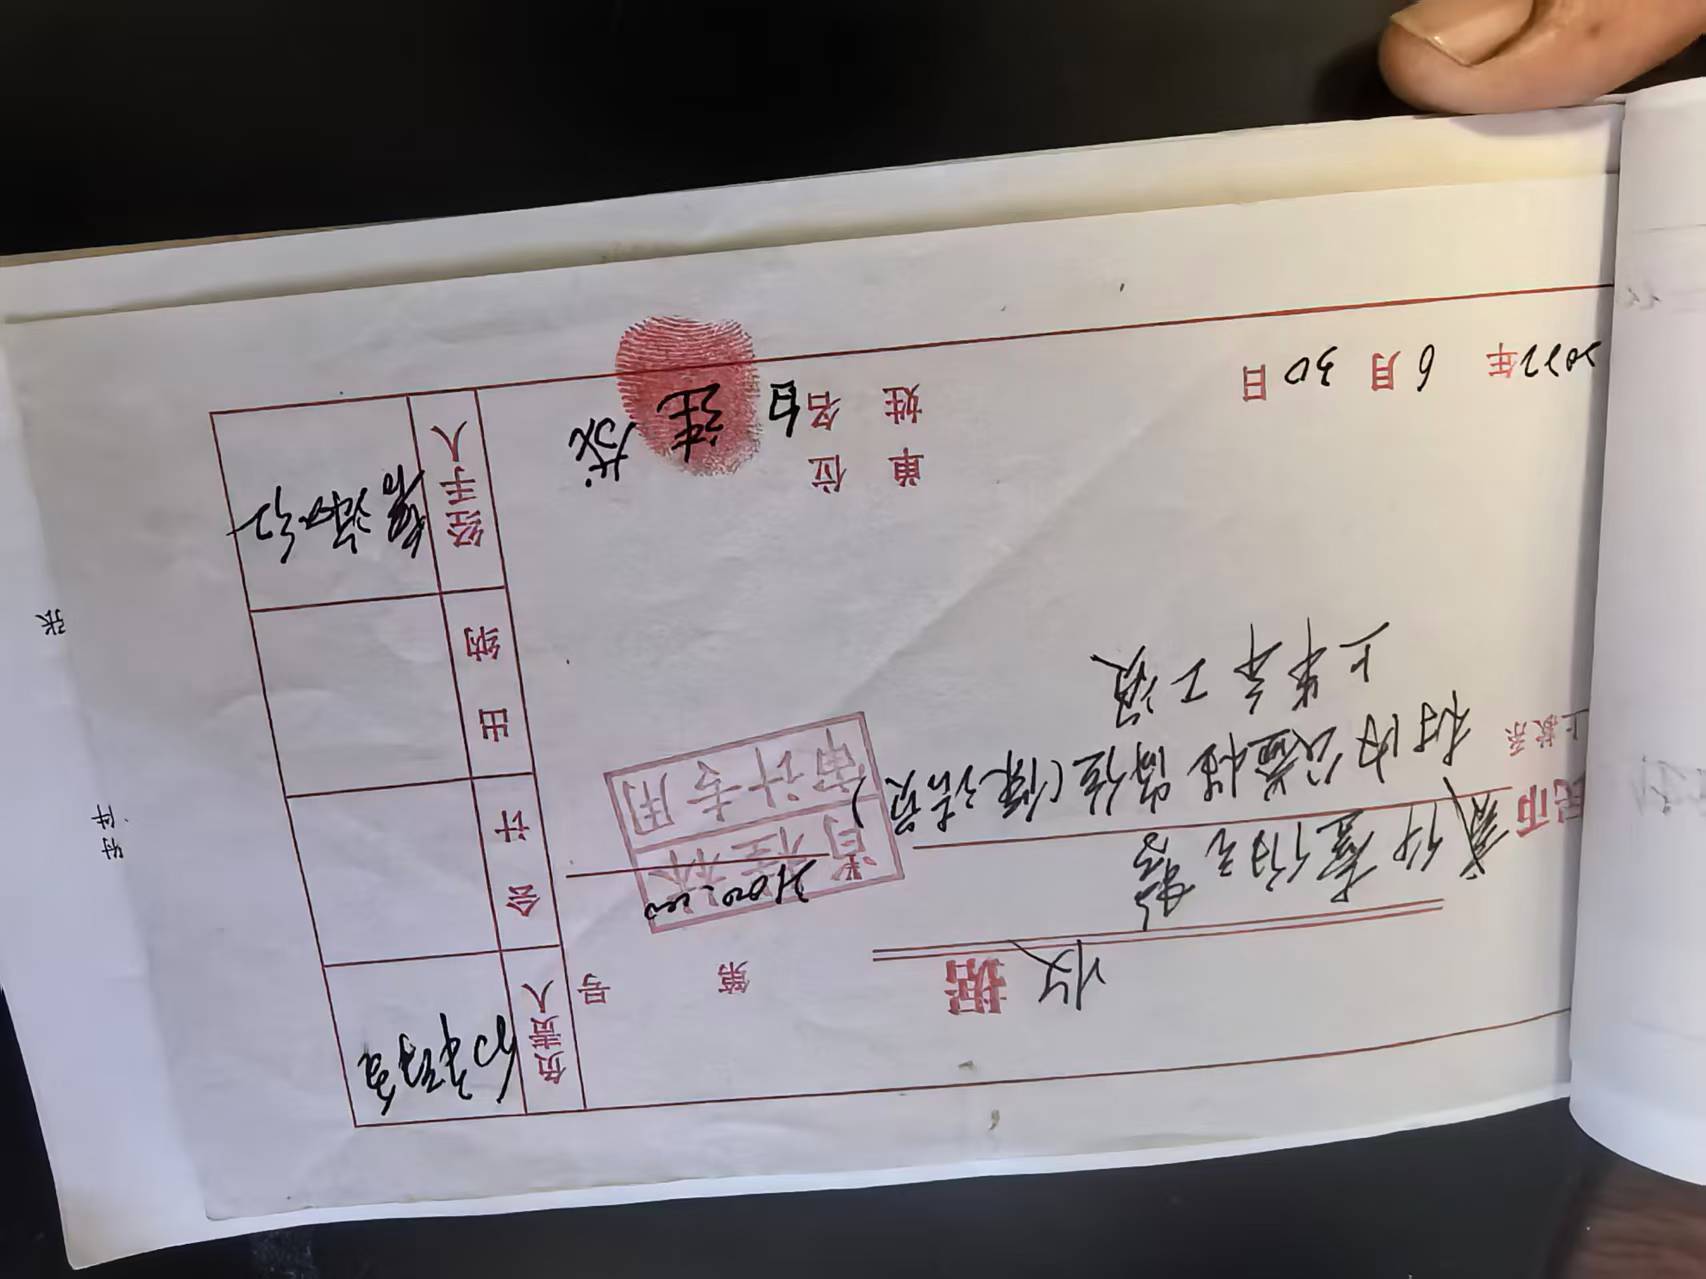 收据
第 号
民币 贰仟壹佰元整 2100.00
上款系 村内公益性岗位(保洁员)
上半年工资
青桂林
审计专用
单位
姓名
2022年 6月 30日
负责人
会计
出纳
经手人
附件 张